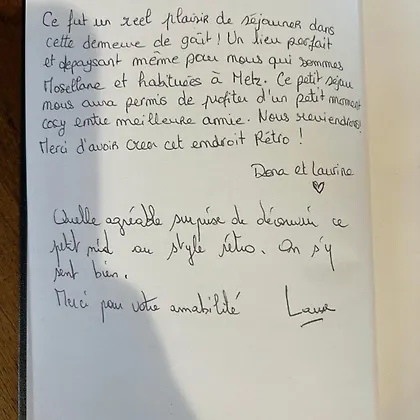 Ce fut un reel plaisir de séjourner dans
cette demeure de goût ! Un lieu parfait
et depaysant même pour nous qui sommes
Mosellane et habituées à Metz. Ce petit séjour
nous aura permis de profiter d'un petit moment
cosy entre meilleure amie. Nous reviendrons
Merci d'avoir creer cet endroit Rétro !
Dona et Laurine
Quelle agréable surprise de découvrir ce
petit nid au style rétro. On s'y
sent bien.
Merci pour votre amabilité
Laura